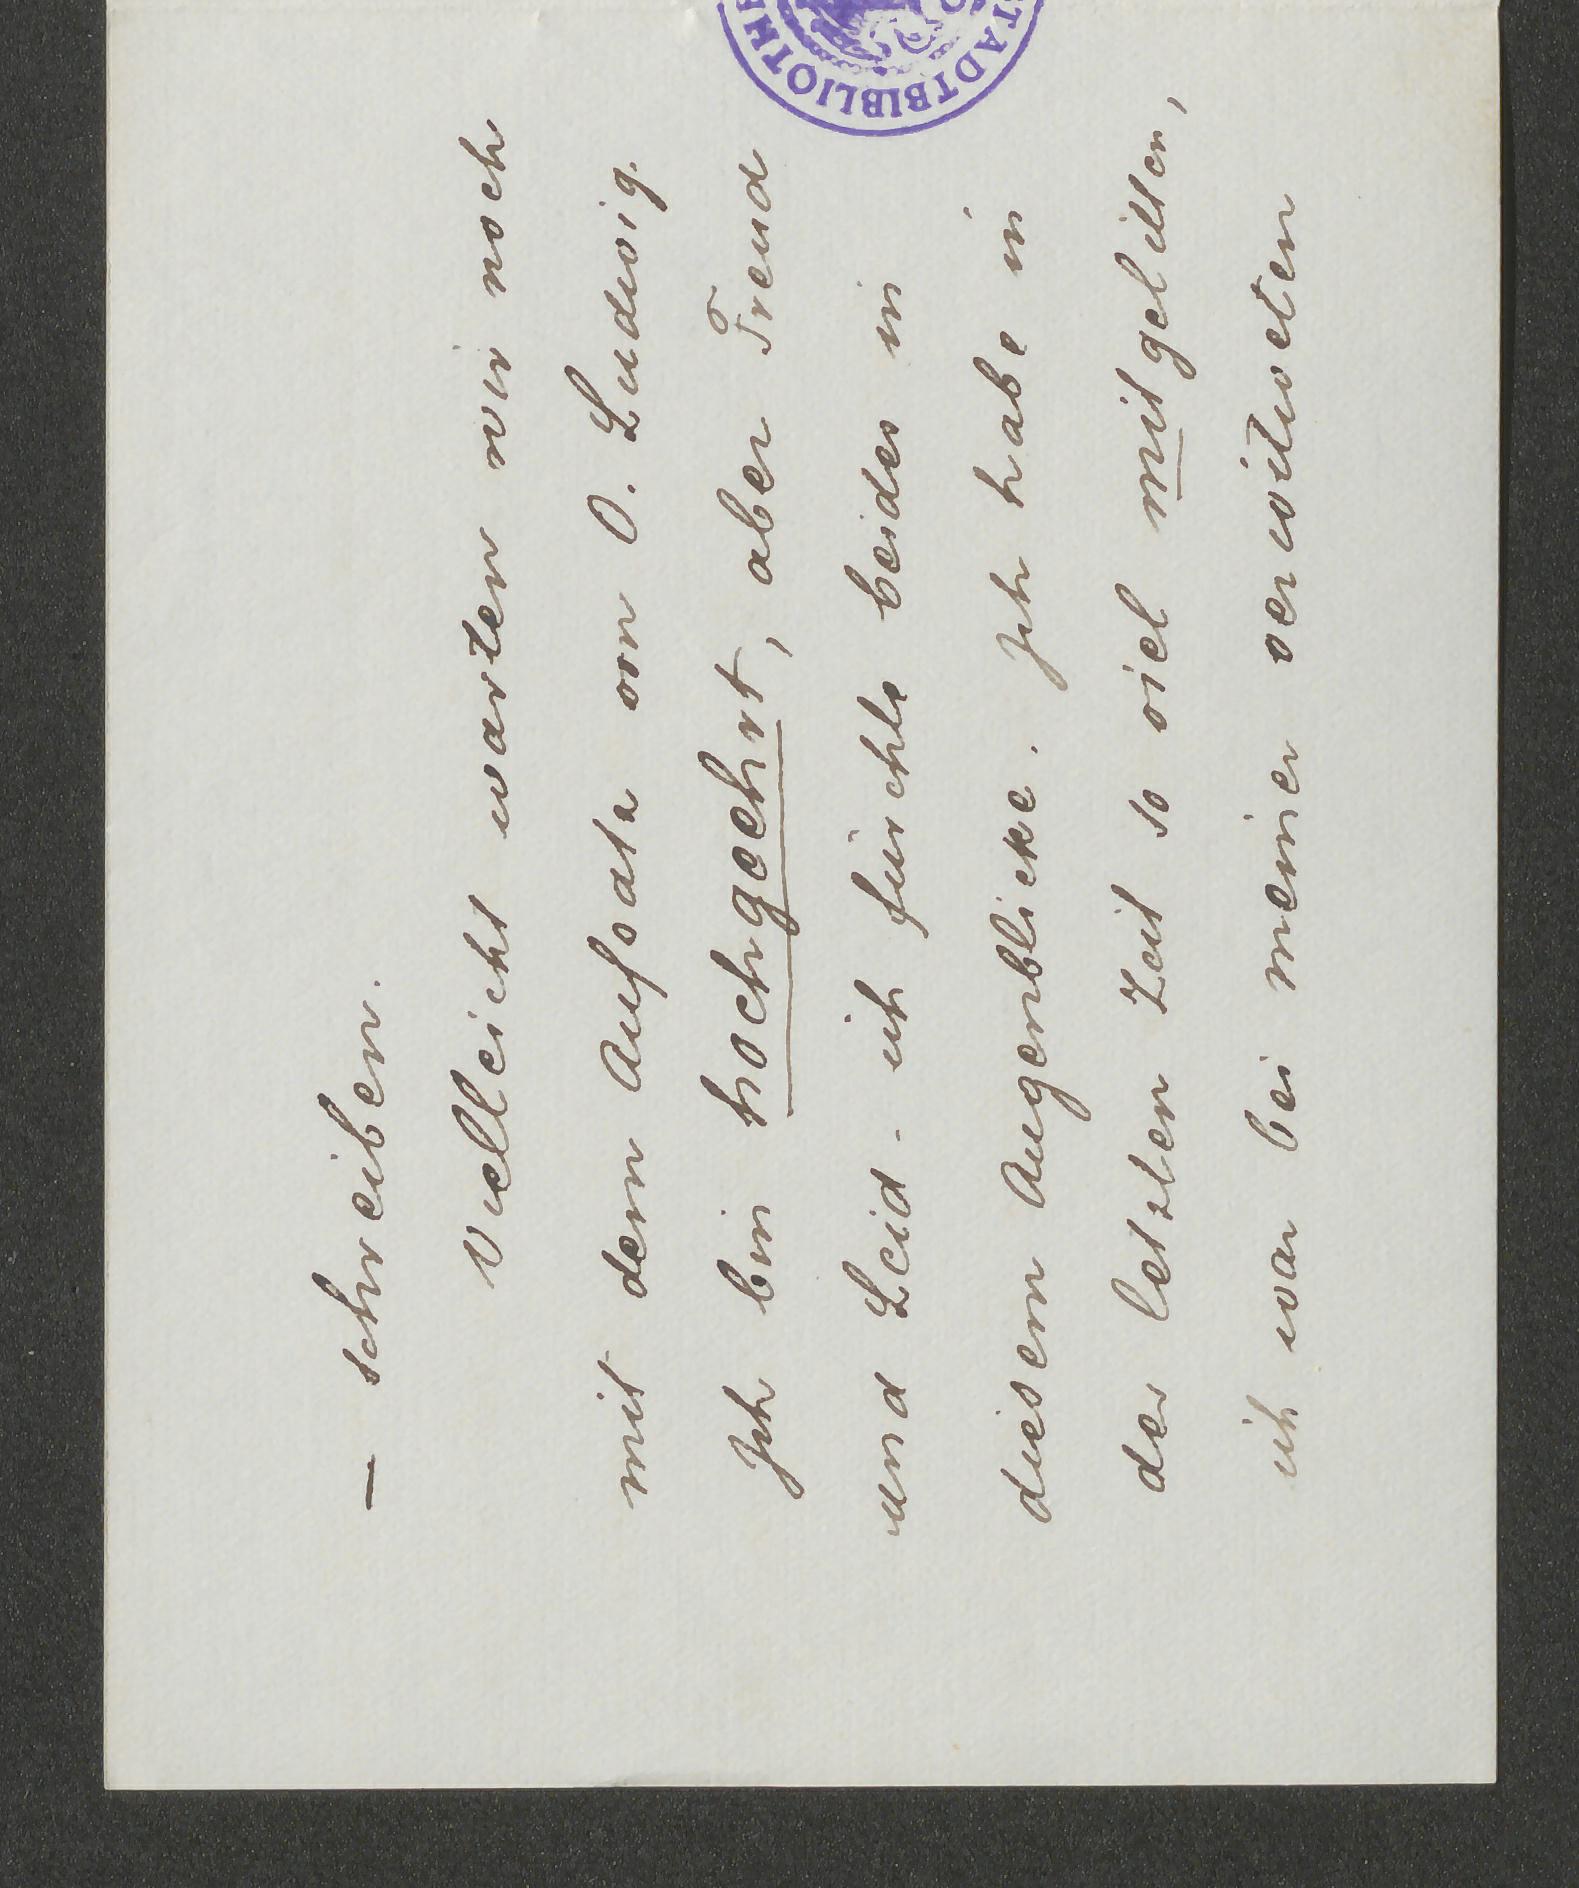 — schreiben.
Vielleicht warten wir noch
mit dem Aufsatz von O. Ludwig.
Ich bin hochgeehrt, aber Freud
und Leid - ich fürchte beides in
diesem Augenblicke. Ich habe in
der letzten Zeit so viel mitgelitten,
ich war bei meiner verwitweten
STADTBIBLIOTHE